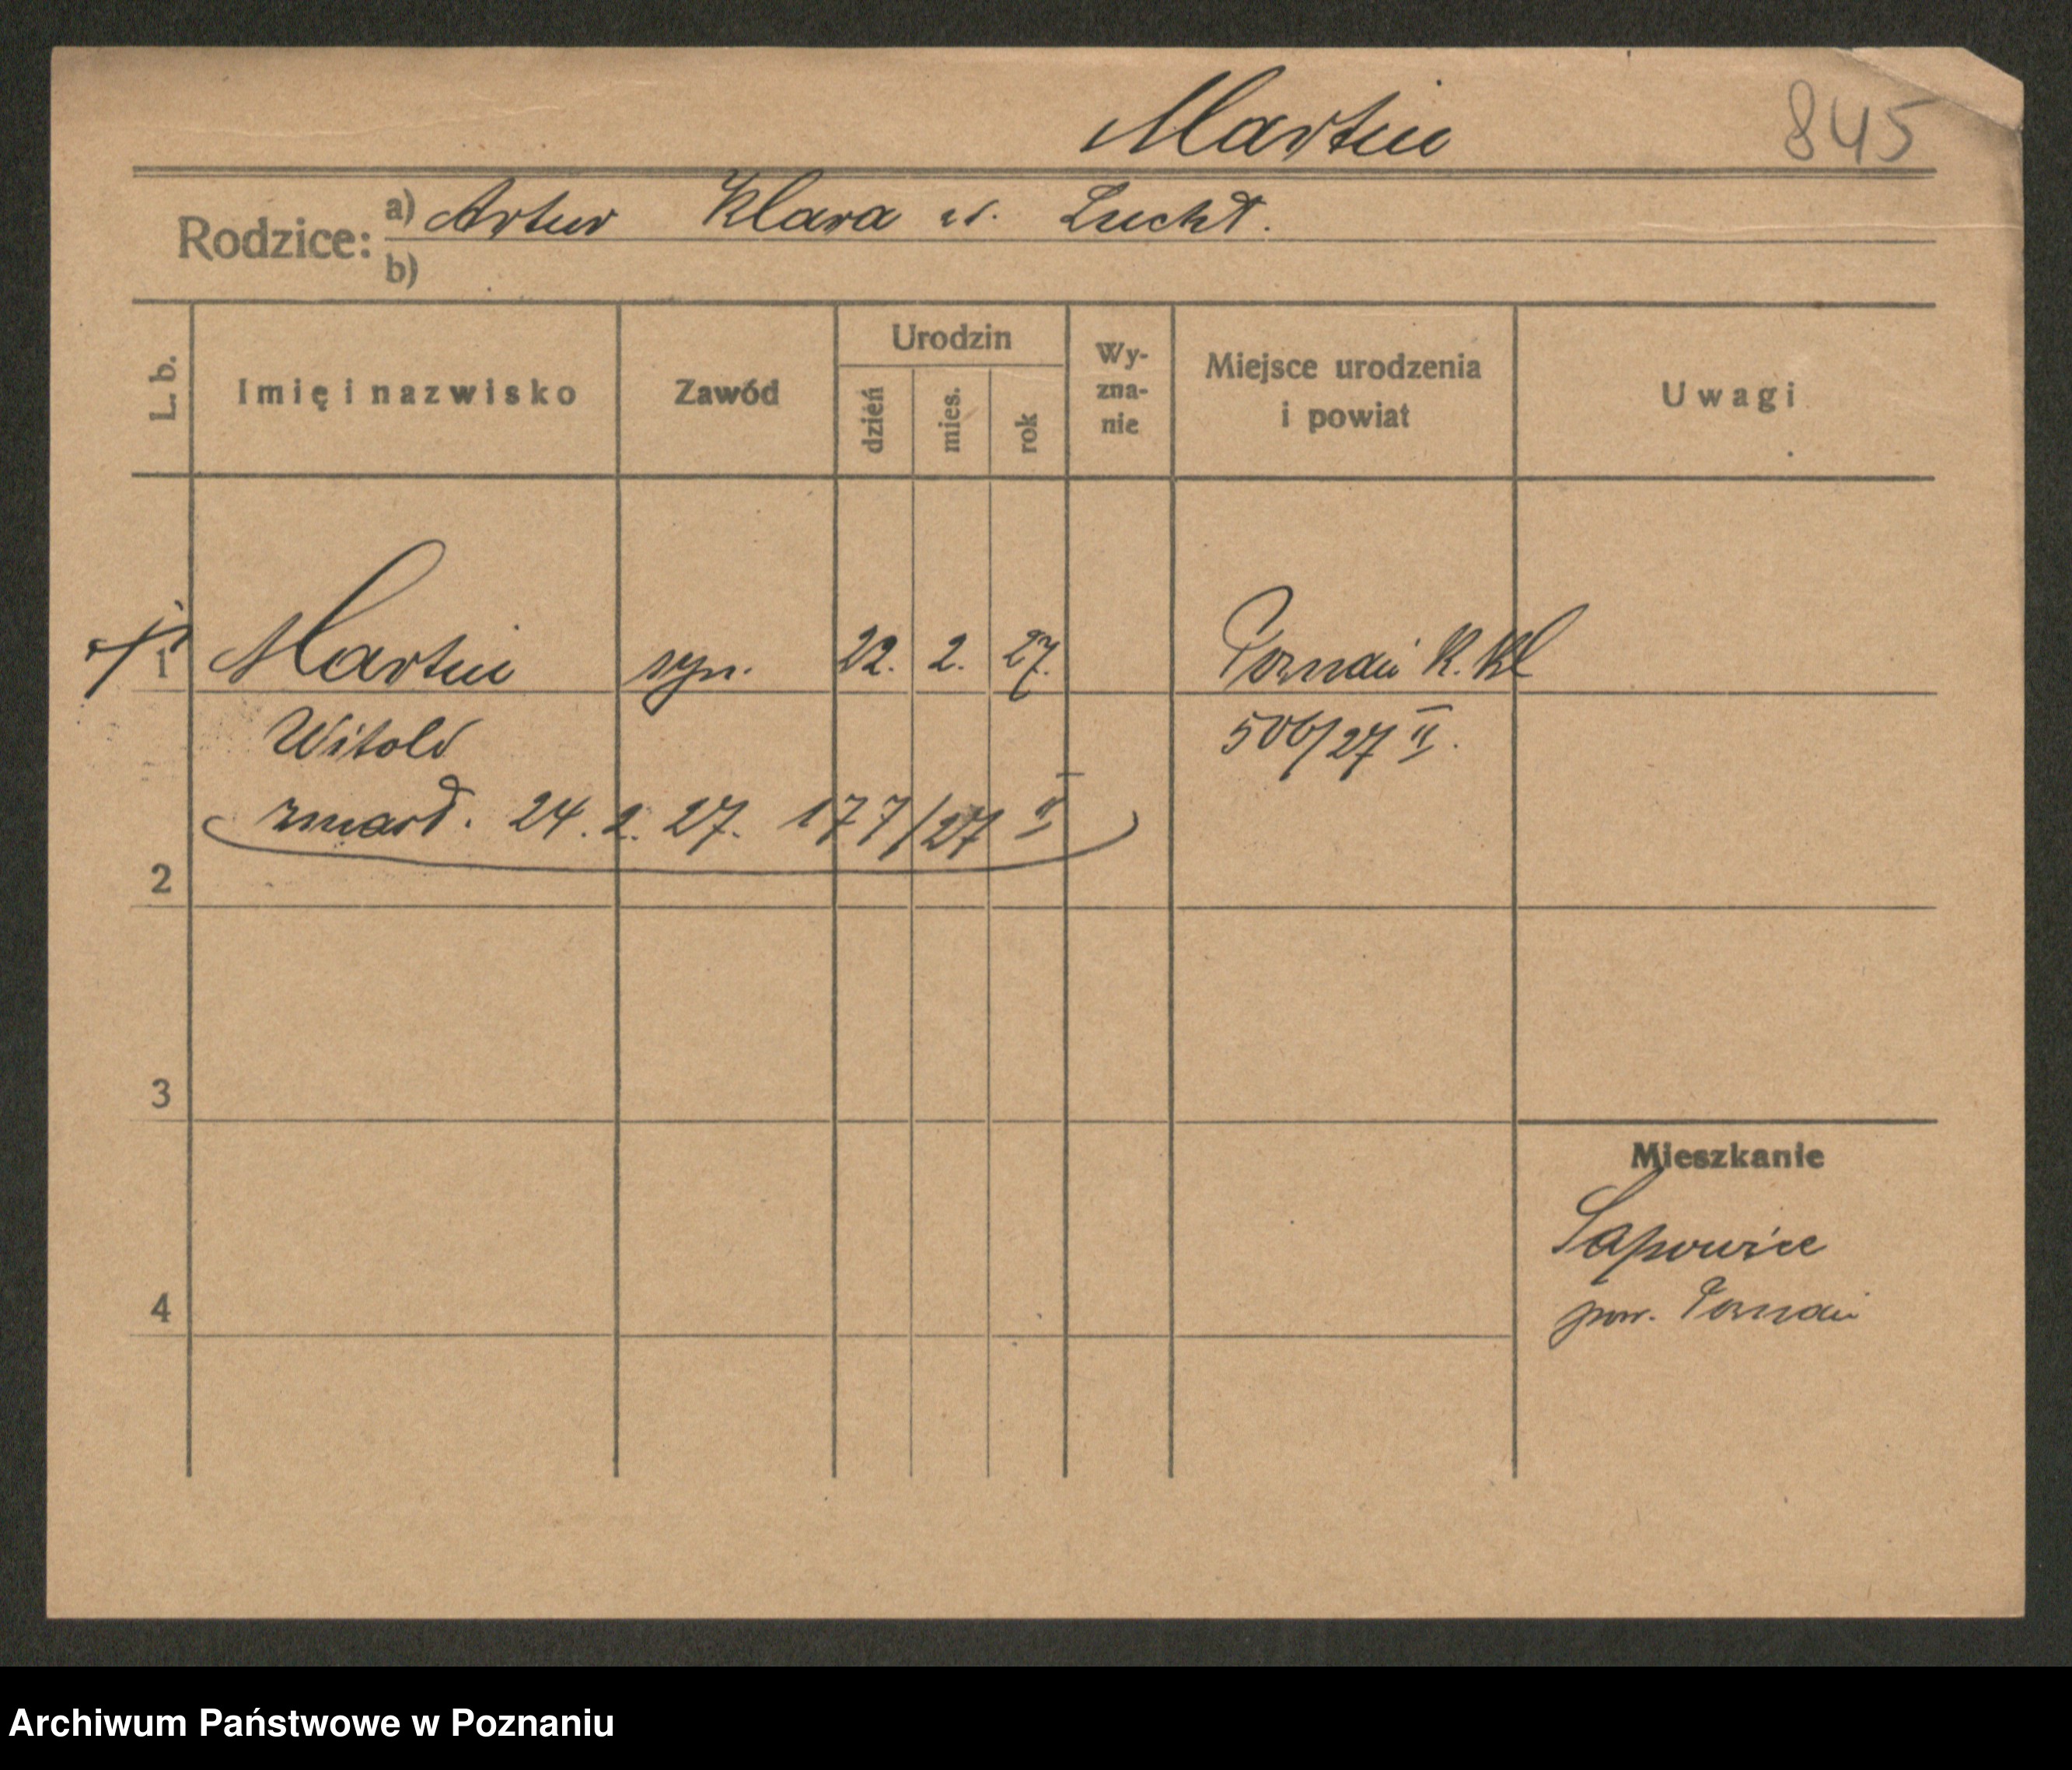 Martin 845
Rodzice: a) Artur Klara z d. Lucht.
b)
L. b. Imię i nazwisko Zawód Urodzin dzień mies. rok Wy-zna-nie Miejsce urodzenia i powiat Uwagi
1 Martin syn. 22. 2. 27. Poznań K. Kl
Witold 506/27 II.
zmarł. 24. 2. 27. 177/27 II
2
3
Mieszkanie
Sapowice
4 pow. Poznań
Archiwum Państwowe w Poznaniu